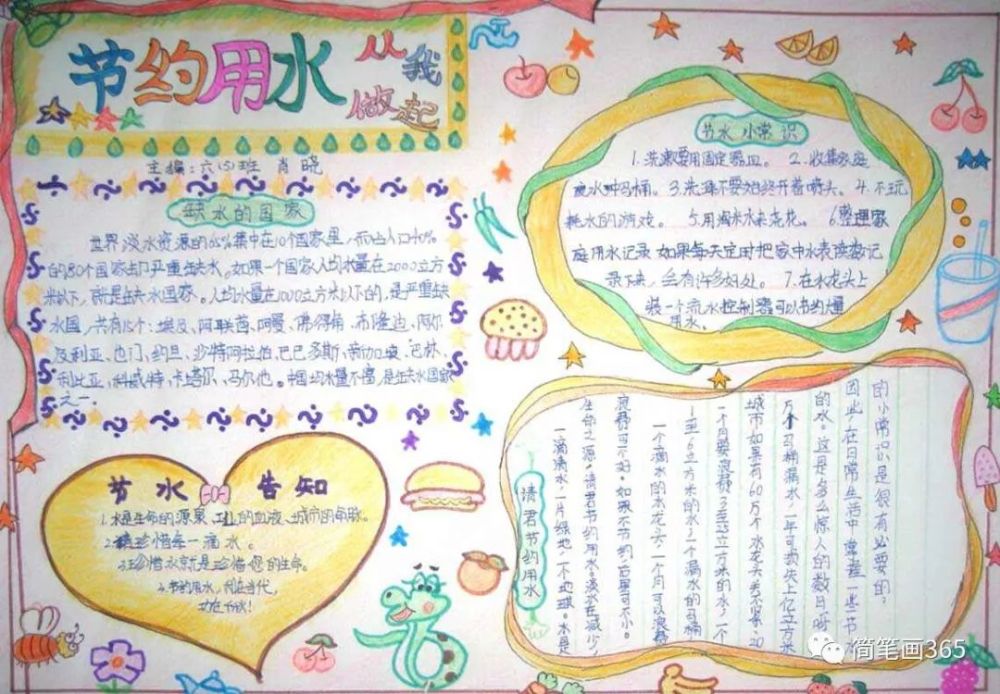 节约用水
从我做起
主编：六(5)班 肖晓
缺水的国家
世界淡水资源的65%集中在10个国家里，而占人口40%
的80个国家却严重缺水。如果一个国家人均水量在2000立方
米以下，就是缺水国家。人均水量在1000立方米以下的，是严重缺
水国，共有15个：埃及、阿联酋、阿曼、佛得角、布隆迪、阿尔
及利亚、也门、约旦、沙特阿拉伯、巴巴多斯、新加坡、巴林、
利比亚、科威特、卡塔尔、马尔他。中国均水量不富，是缺水国家
之一。
节水小常识
1.洗漱要用固定器皿。 2.收集家庭
废水冲马桶。3.洗澡不要始终开着喷头。4.不玩
耗水的游戏。 5.用淘米水来浇花。 6.整理家
庭用水记录 如果每天定时把家中水表读数记
录下来，会有许多好处。 7.在水龙头上
装一个流水控制器可以节约大量
用水。
节水告知
1.水是生命的源泉、工业的血液、城市的命脉。
2.请珍惜每一滴水。
3.珍惜水就是珍惜您的生命。
4.节约用水，利在当代，
功在千秋！
请君节约用水
一滴滴水，一片绿地，一个地球。水是
生命之源，请君节约用水，淡水在减少，
浪费可不好。如果不节约，后果可不小。
一个滴水的水龙头，一个月可以浪费
1至6立方米的水，一个漏水的马桶，
一个月要浪费3至25立方米的水，一个
城市如果有60万个水龙头关不紧，20
万个马桶漏水，一年可损失上亿立方米
的水。这是多么惊人的数目啊！
因此，在日常生活中，掌握一些节水
的小常识是很有必要的。
简笔画365